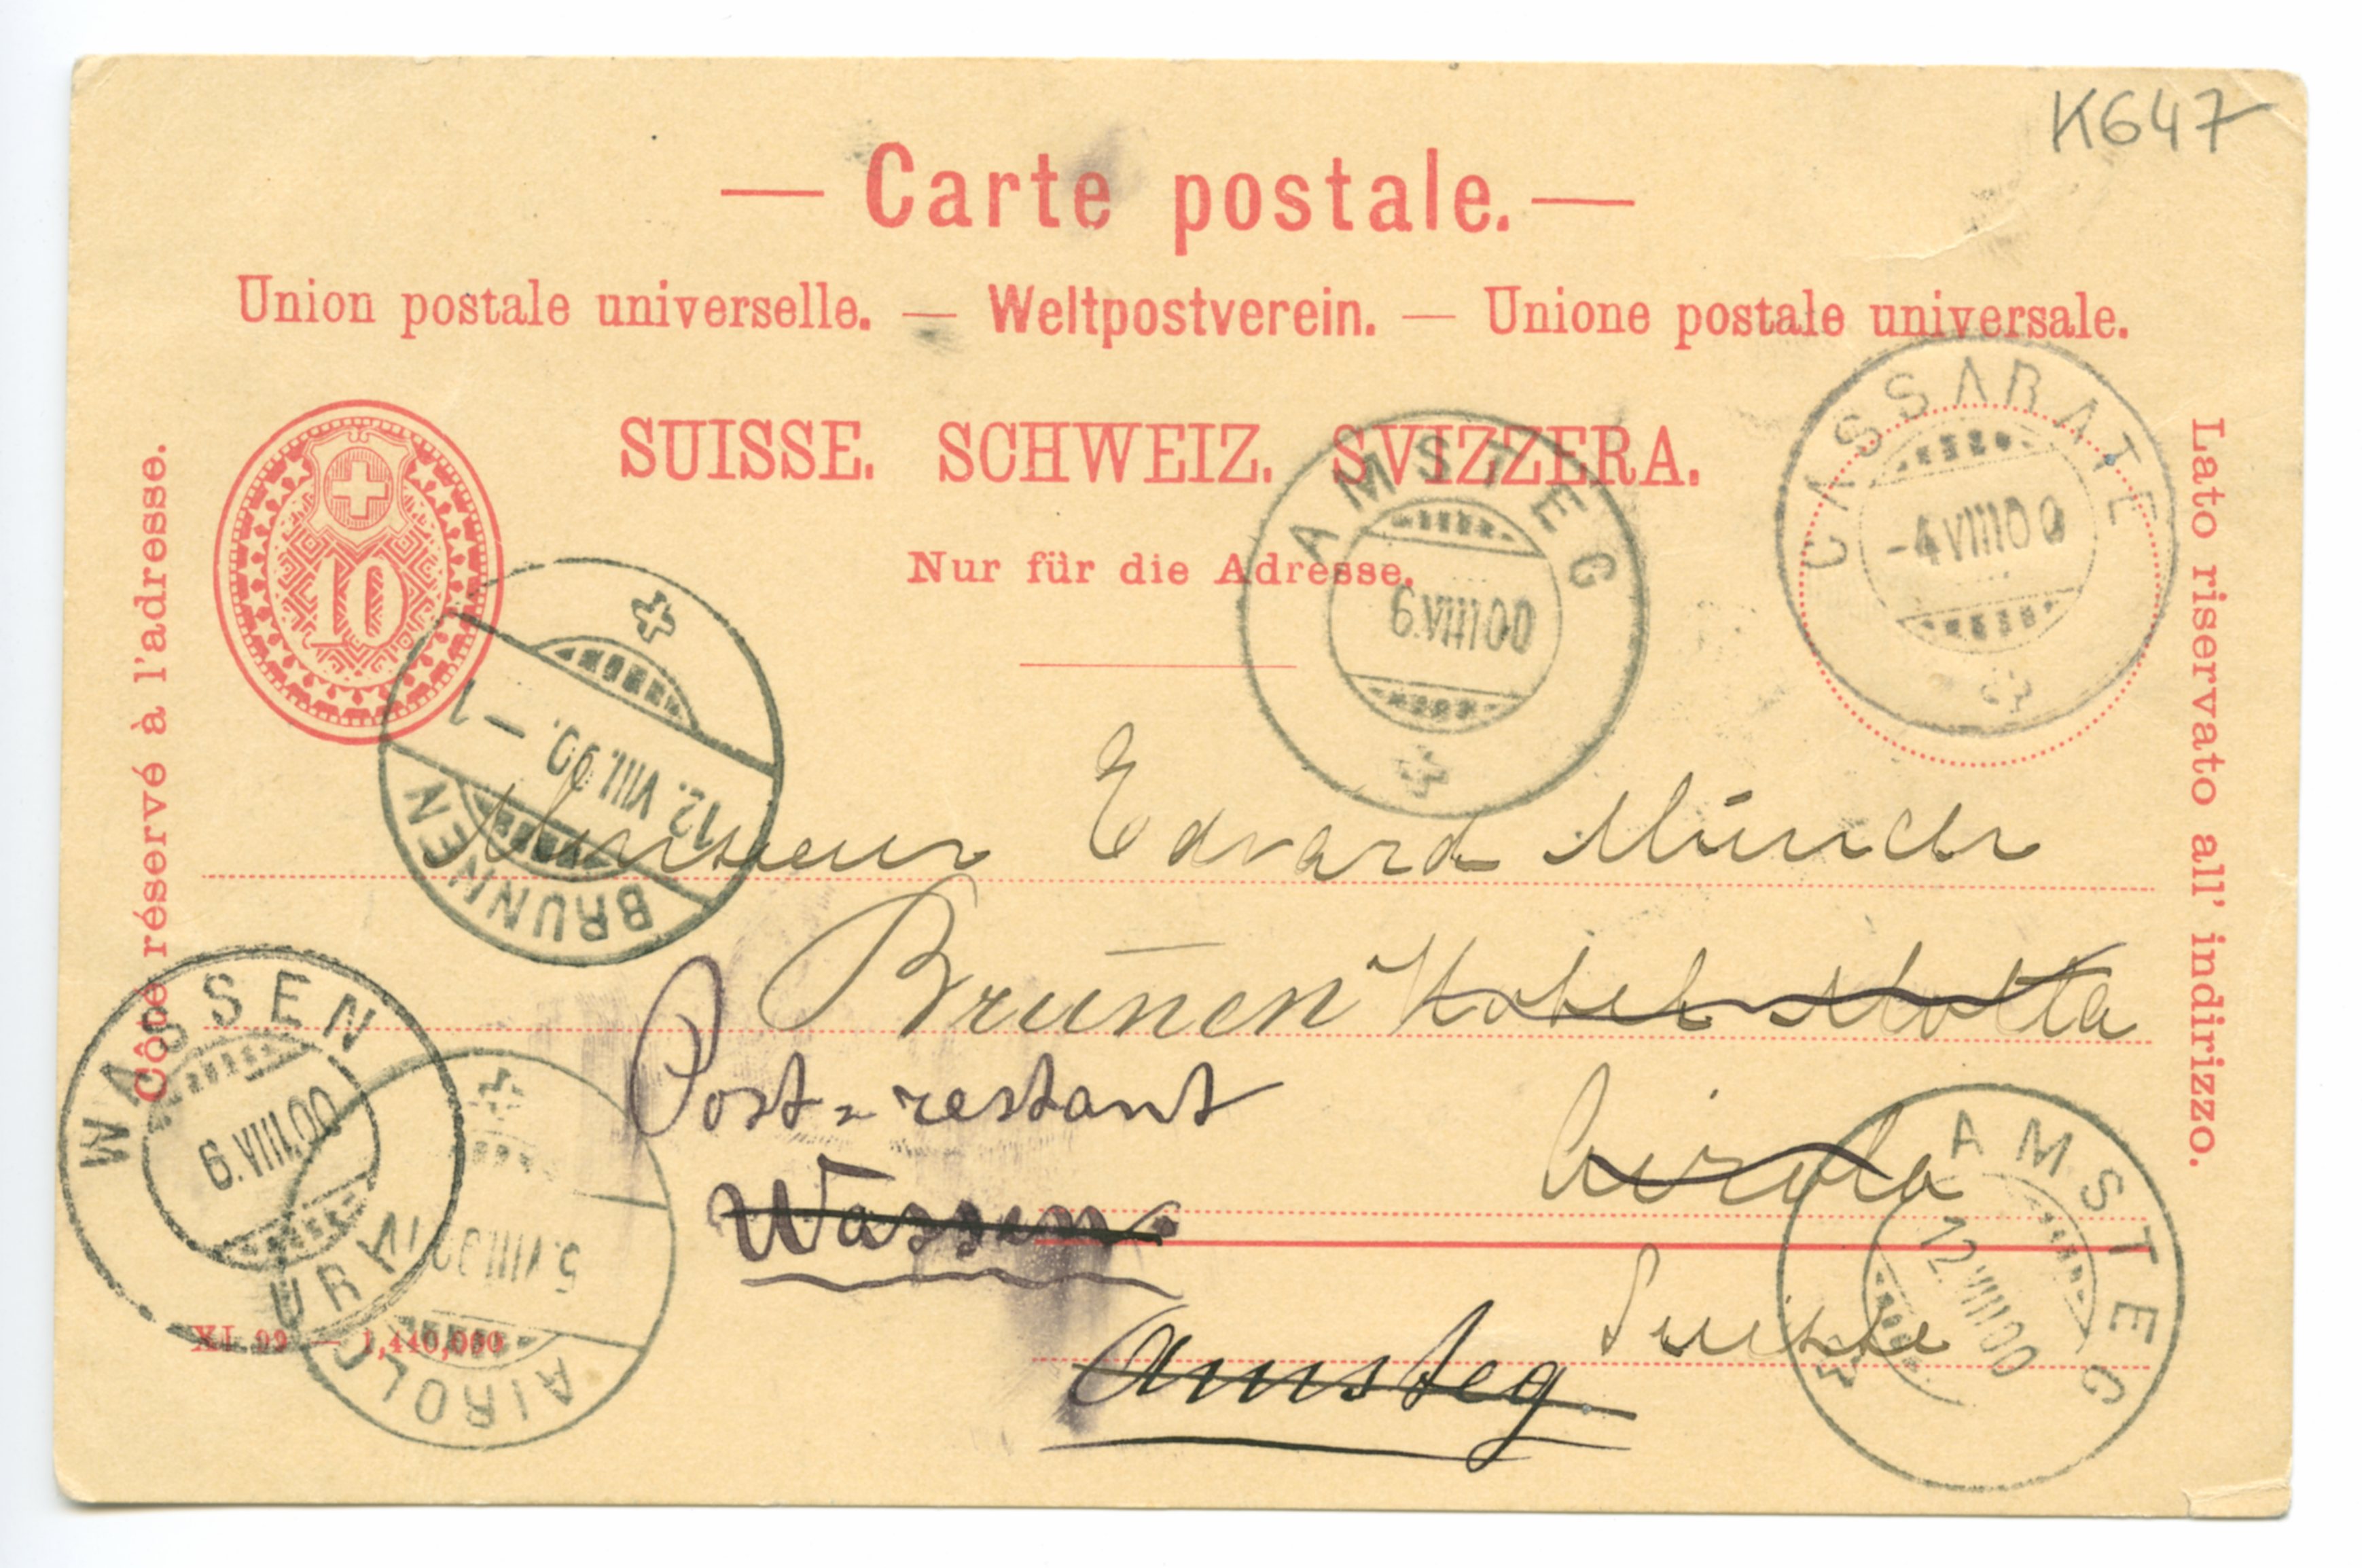 K647
— Carte postale. —
Union postale universelle. — Weltpostverein. — Unione postale universale.
SUISSE. SCHWEIZ. SVIZZERA.
Nur für die Adresse.
Côté réservé à l'adresse.
Lato riservato all' indirizzo.
10
CASSARATE
-4 VIII 00
AMSTEG
6.VIII 00
BRUNNEN
12.VIII.00.–1
Monsieur Edvard Münch
Brunen Hotel Motta
Post=restant
Airolo
Wassen
Suisse
Amsteg.
WASSEN
6.VIII.00
URI
AIROLO
5.VIII.00
AMSTEG
12.VIII 00
XI. 99 — 1,440,000